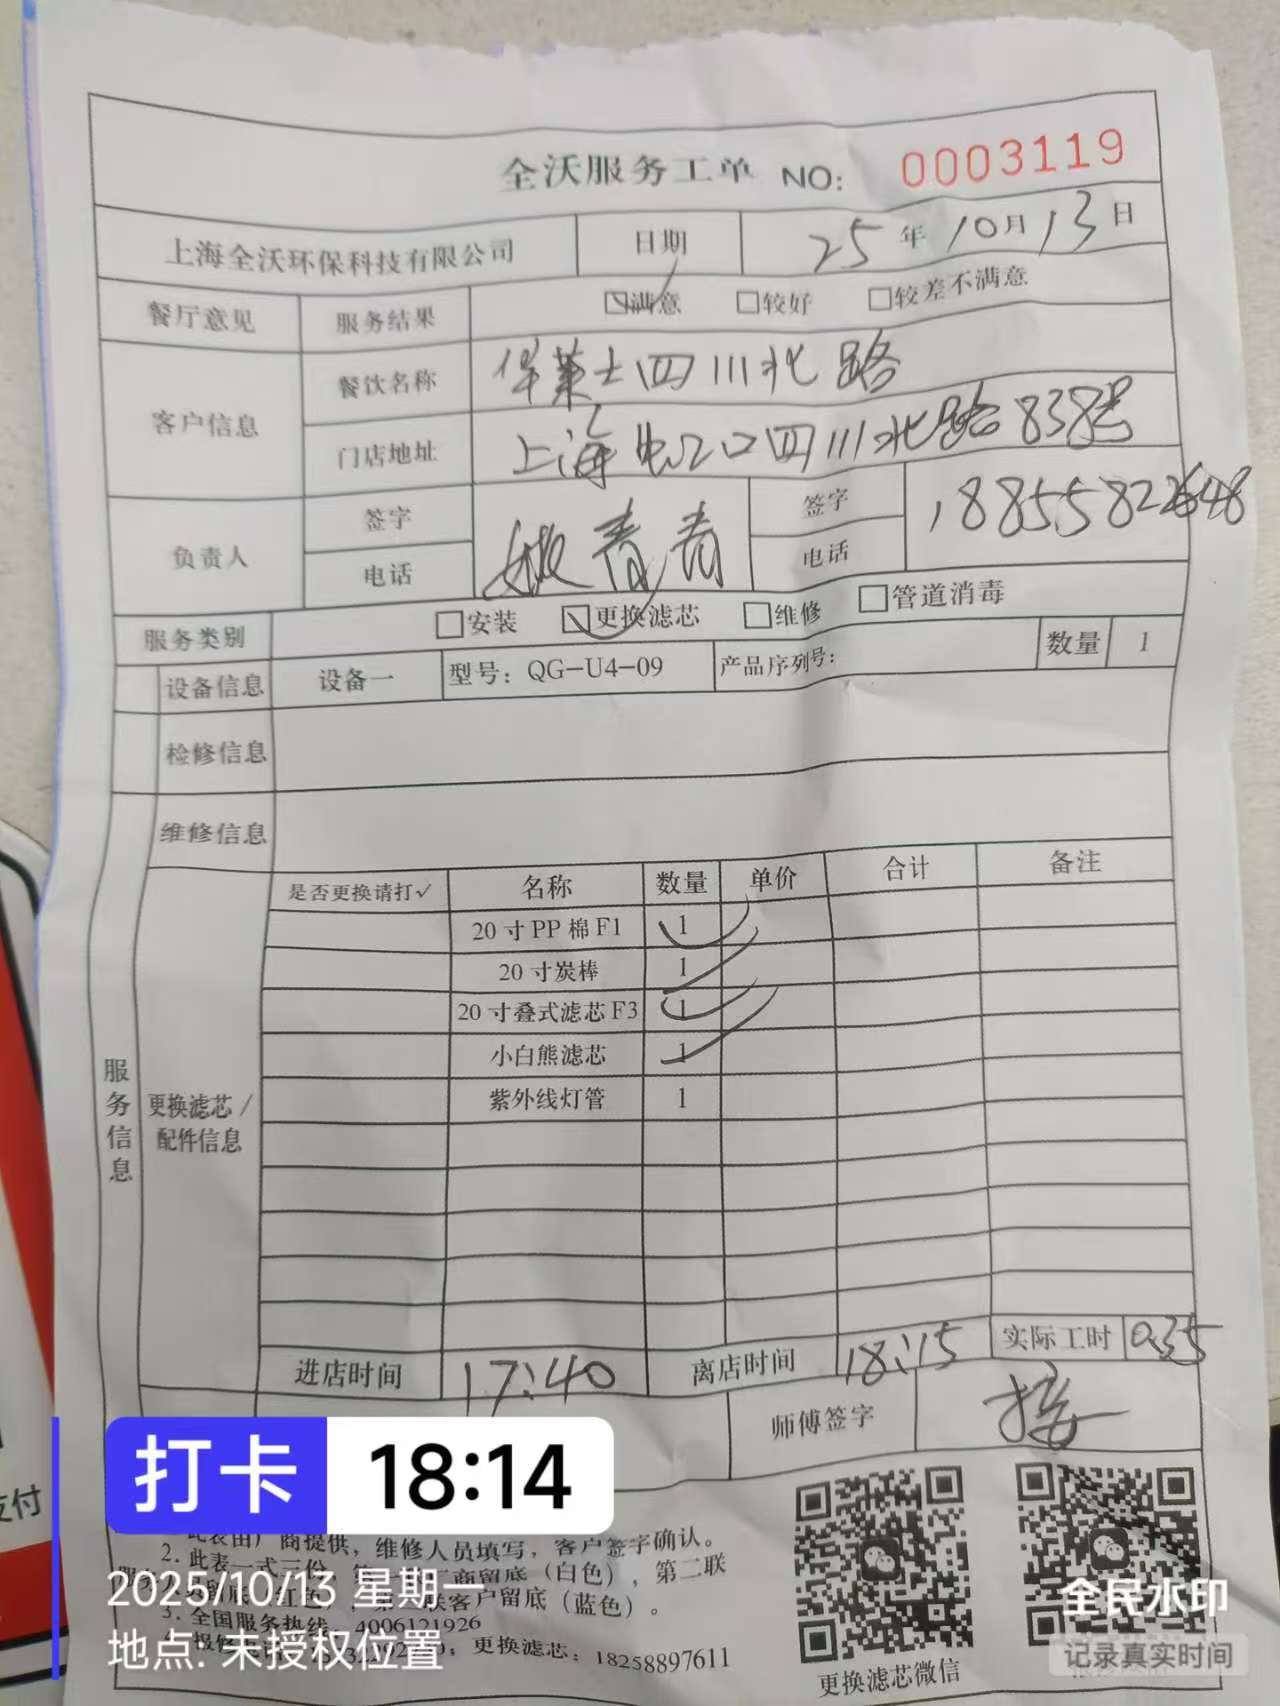 全沃服务工单 NO: 0003119
上海全沃环保科技有限公司 日期 25年10月13日
餐厅意见 服务结果 ☑满意 □较好 □较差不满意
客户信息 餐饮名称 华莱士四川北路
门店地址 上海虹口四川北路838号
负责人 签字 电话 姚青青 签字 电话
服务类别 □安装 ☑更换滤芯 □维修 □管道消毒
设备信息 设备一 型号: QG-U4-09 产品序列号: 数量 1
检修信息
维修信息
服务信息
更换滤芯/配件信息
是否更换请打✓ 名称 数量 单价 合计 备注
20寸PP棉F1 1
20寸炭棒 1
20寸叠式滤芯F3 1
小白熊滤芯 1
紫外线灯管 1
进店时间 17:40 离店时间 18:15 实际工时 0.35
师傅签字
打卡 18:14
商提供，维修人员填写，客户签字确认。
2. 此表一式三份，
商留底（白色），第二联
客户留底（蓝色）。
3. 全国服务热线: 4006121926
更换滤芯: 18258897611
更换滤芯微信
2025/10/13 星期一
地点: 未授权位置
全民水印
记录真实时间
支付